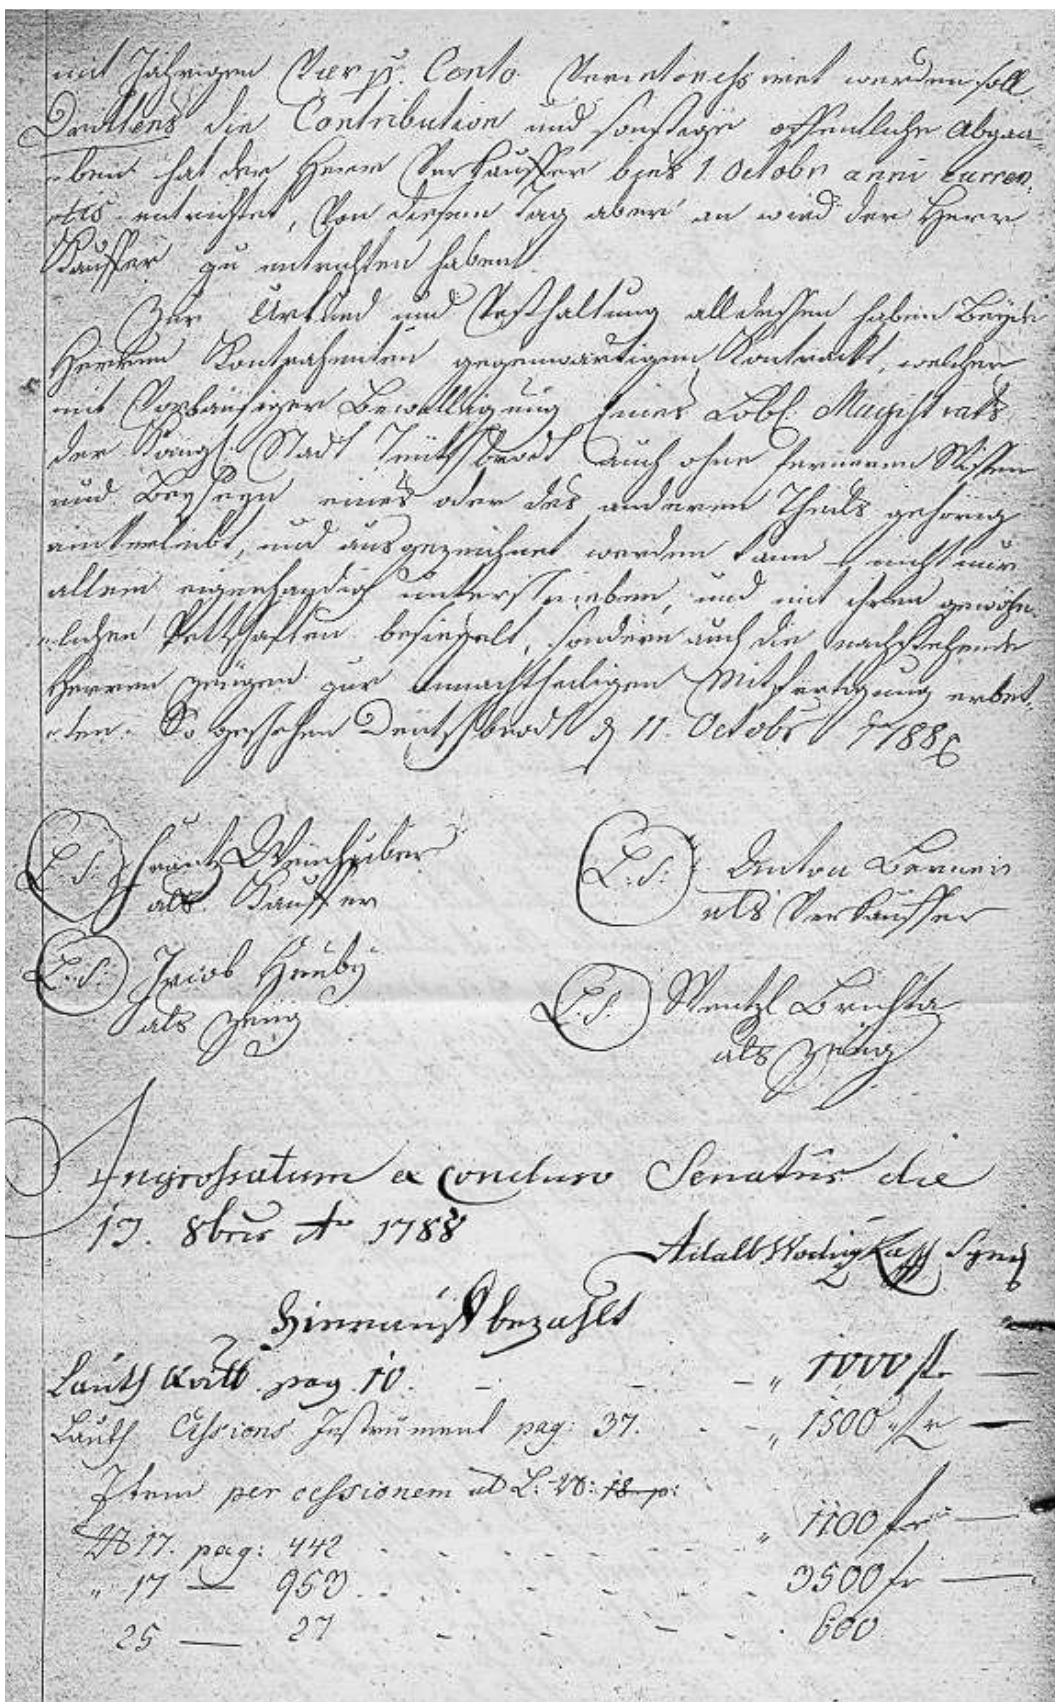 mit Jährigen Vier p. Cento Verintereßiret werden soll.
Drittens die Contribution und sonstige offentliche Abgaa-
-ben hat der Herr Verkauffer bies 1. Octobr anni curren-
-tis entrichtet, Von diesem Tag aber an wird der Herr
Kauffer zu entrichten haben.
Zur Urkund und Vesthaltung alldessen haben Beyde
Herren Kontrahenten gegenwärtigen Kontrackt, welcher
mit Vorläufiger Bewilligung Eines Löbl. Magistrats
der Königl. Stadt Teutschbrodt auch ohne ferneren Wissen
und Beyseyn eines oder des anderen Theils gehörig
einverleibt, und ausgezeichnet werden kann nicht nur
allein eigenhändig unterschrieben, und mit ihren gewöhn-
-lichen Pettschaften besiegelt, sondern auch die nachstehende
Herren Zeugen zur unnachtheiligen Mitfertigung erbet-
-ten. So geschehen Deutschbrodt d 11. Octobr 1788
L. S. Frantz Weinhuber
als Kauffer
L: S: Anton Berner
als Verkauffer
L. S: Jacob Hruby
als Zeug
L. S. Wentzl Brichta
als Zeug
Ingrossatum ex concluso Senatus die
13. 8bris Ao 1788
Adalb. Synd
Hierauf bezahlt
Lauth Quitt. pag. 10. - - - " 1000 fl. —
Lauth Cessions Instrument pag: 37. - - " 1500 fr —
Item per cessionem ad L: 18 p:
17. pag: 442 - - - - " 1100 fr —
" 17 — 953 - - - - 3500 fr —
25 — 27 - - - - 600